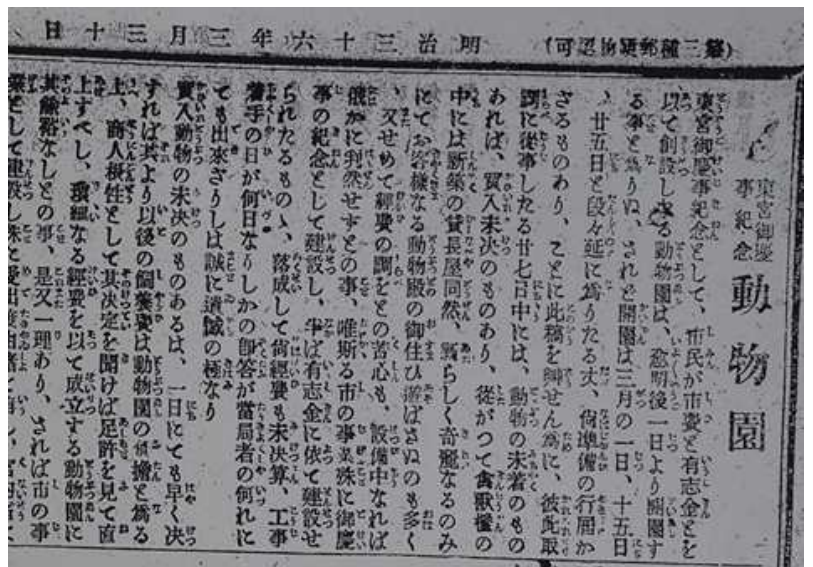 日十三月三年六十三治明
(第三種郵便物認可)
東宮御慶事紀念 動物園
東宮御慶事紀念として、市民が市費と有志金とを
以て創設したる動物園は、愈明後一日より開園す
る事と為りぬ、されど開園は三月の一日、十五日
、廿五日と段々延に為りたる丈、尚準備の行届か
ざるものあり、ことに此稿を艸せん為に、彼此取
調に従事したる廿七日中には、動物の未着のもの
あれば、買入未決のものあり、従がつて禽獣檻の
中には新築の貸長屋同然、新らしく奇麗なるのみ
にてお客様なる動物殿の御住ひ遊ばさぬのも多く
、又せめて経費の調をとの苦心も、設備中なれば
俄かに判然せずとの事、唯斯る市の事業殊に御慶
事の紀念として建設し、半ば有志金に依て建設せ
られたるものゝ、落成して尚経費も未決算、工事
着手の日が何日なりしかの即答が当局者の何れに
ても出来ざりしは誠に遺憾の極なり
買入動物の未決のものあるは、一日にても早く決
すれば其より以後の飼養費は動物園の負担と為る
上、商人根性として其決定を聞けば足許を見て直
上すべし、瑣細なる経費を以て成立する動物園に
其余裕なしとの事、是又一理あり、されば市の事
業として建設し殊に